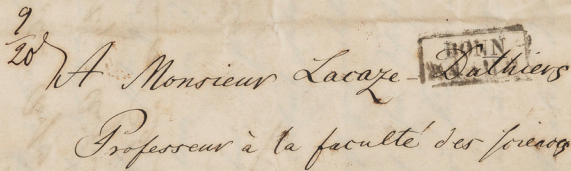 9
20
BONN
A Monsieur Lacaze-Duthiers
Professeur à la faculté des sciences